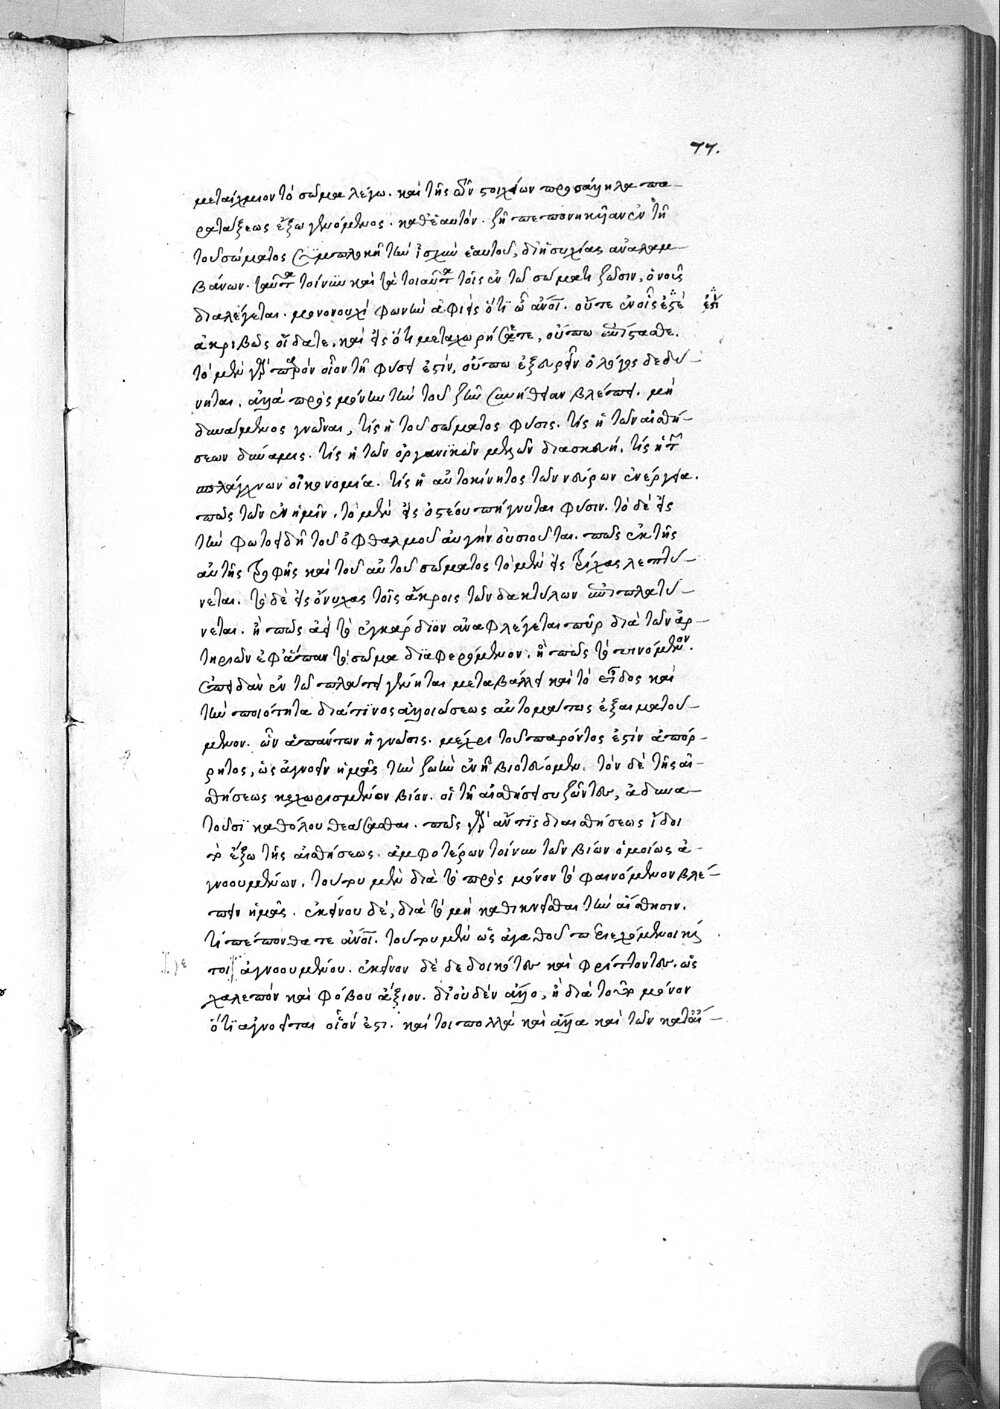 77.
μεταίχμιον τὸ σῶμα λέγω. καὶ τῆς τῶν στοιχείων προσαλλήλα πα-
ρατάξεως ἔξω γενόμενος. καθ' ἑαυτὸν. ζῆ πεπονηκυῖαν ἐν τῆ
τοῦ σώματος συμπλοκῆ τὴν ἰσχὺν ἑαυτοῦ, δι' ἡσυχίας ἀναλαμ-
βάνων. ταῦτα τοίνυν καὶ τὰ τοιαῦτα τοῖς ἐν τῶ σώματι ζῶσιν, ὁ νοῦς
διαλέγεται. μονονουχὶ φωνὴν ἀφιεὶς ὅτι ὦ ἄνοι. οὔτε ἐν οἷς ἐστὲ
ἐπὶ
ἀκριβῶς οἴδατε, καὶ εἰς ὅτι μεταχωρήσετε, οὔπω ἐπίστασθε.
τὸ μὲν γὰρ παρὸν οἷον τῆ φύσει ἐστὶν, οὔπω ἐξευρεῖν ὁ λόγος δεδύ-
νηται. ἀλλὰ πρὸς μόνην τὴν τοῦ ζῆν συνήθειαν βλέπει. μὴ
δυνάμενος γνῶναι, τίς ἡ τοῦ σώματος φύσις. τίς ἡ τῶν αἰσθή-
σεων δύναμις. τίς ἡ τῶν ὀργανικῶν μελῶν διασκευὴ. τίς ἡ τῶν
σπλάγχνων οἰκονομία. τίς ἡ αὐτοκίνητος τῶν νεύρων ἐνέργεια.
πῶς τῶν ἐν ἡμῖν. τὸ μὲν εἰς ὀστέου πήγνυται φύσιν. τὸ δὲ εἰς
τὴν φωτοειδῆ τοῦ ὀφθαλμοῦ αὐγὴν οὐσιοῦται. πῶς ἐκ τῆς
αὐτῆς τροφῆς καὶ τοῦ αὐτοῦ σώματος τὸ μὲν εἰς τρίχας λεπτύ-
νεται. τὸ δὲ εἰς ὄνυχας τοῖς ἄκροις τῶν δακτύλων ἐπιπλατύ-
νεται. ἢ πῶς ἀεὶ τὸ ἐγκάρδιον ἀναφλέγεται πῦρ διὰ τῶν ἀρ-
τηριῶν ἐφ' ἅπαν τὸ σῶμα διαφερόμενον. ἢ πῶς τὸ πινόμενον.
ἐπειδὰν ἐν τῶ ἥπατι γένηται μεταβάλλει καὶ τὸ εἶδος καὶ
τὴν ποιότητα διά τινος ἀλλοιώσεως αὐτομάτως ἐξαιματού-
μενον. ὧν ἁπάντων ἡ γνῶσις. μέχρι τοῦ παρόντος ἐστὶν ἀπόρ-
ρητος, ὡς ἀγνοεῖν ἡμᾶς τὴν ζωὴν ἐν ἧ βιοτεύομεν. τὸν δὲ τῆς αἰ-
σθήσεως κεχωρισμένον βίον. οἱ τῆ αἰσθήσει συζῶντες, ἀδυνα-
τοῦσι καθόλου θεάσασθαι. πῶς γὰρ ἄν τις δι' αἰσθήσεως ἴδοι
τὸ ἔξω τῆς αἰσθήσεως. ἀμφοτέρων τοίνυν τῶν βίων ὁμοίως ἀ-
γνοουμένων. τούτου μὲν διὰ τὸ πρὸς μόνον τὸ φαινόμενον βλέ-
πειν ἡμᾶς. ἐκείνου δὲ, διὰ τὸ μὴ καθικνεῖσθαι τὴν αἴσθησιν.
τί πεπόνθατε ἄνοι. τούτου μὲν ὡς ἀγαθοῦ περιεχόμενοι καί
ποι ἀγνοουμένου. ἐκεῖνον δὲ δεδοικότες καὶ φρίττοντες. ὡς
γε
χαλεπὸν καὶ φόβου ἄξιον. δι' οὐδὲν ἄλλο, ἢ διὰ τοῦτο μόνον
ὅτι ἀγνοεῖται οἷόν ἐστι. καίτοι πολλὰ καὶ ἄλλα καὶ τῶν κατ' αἴ-